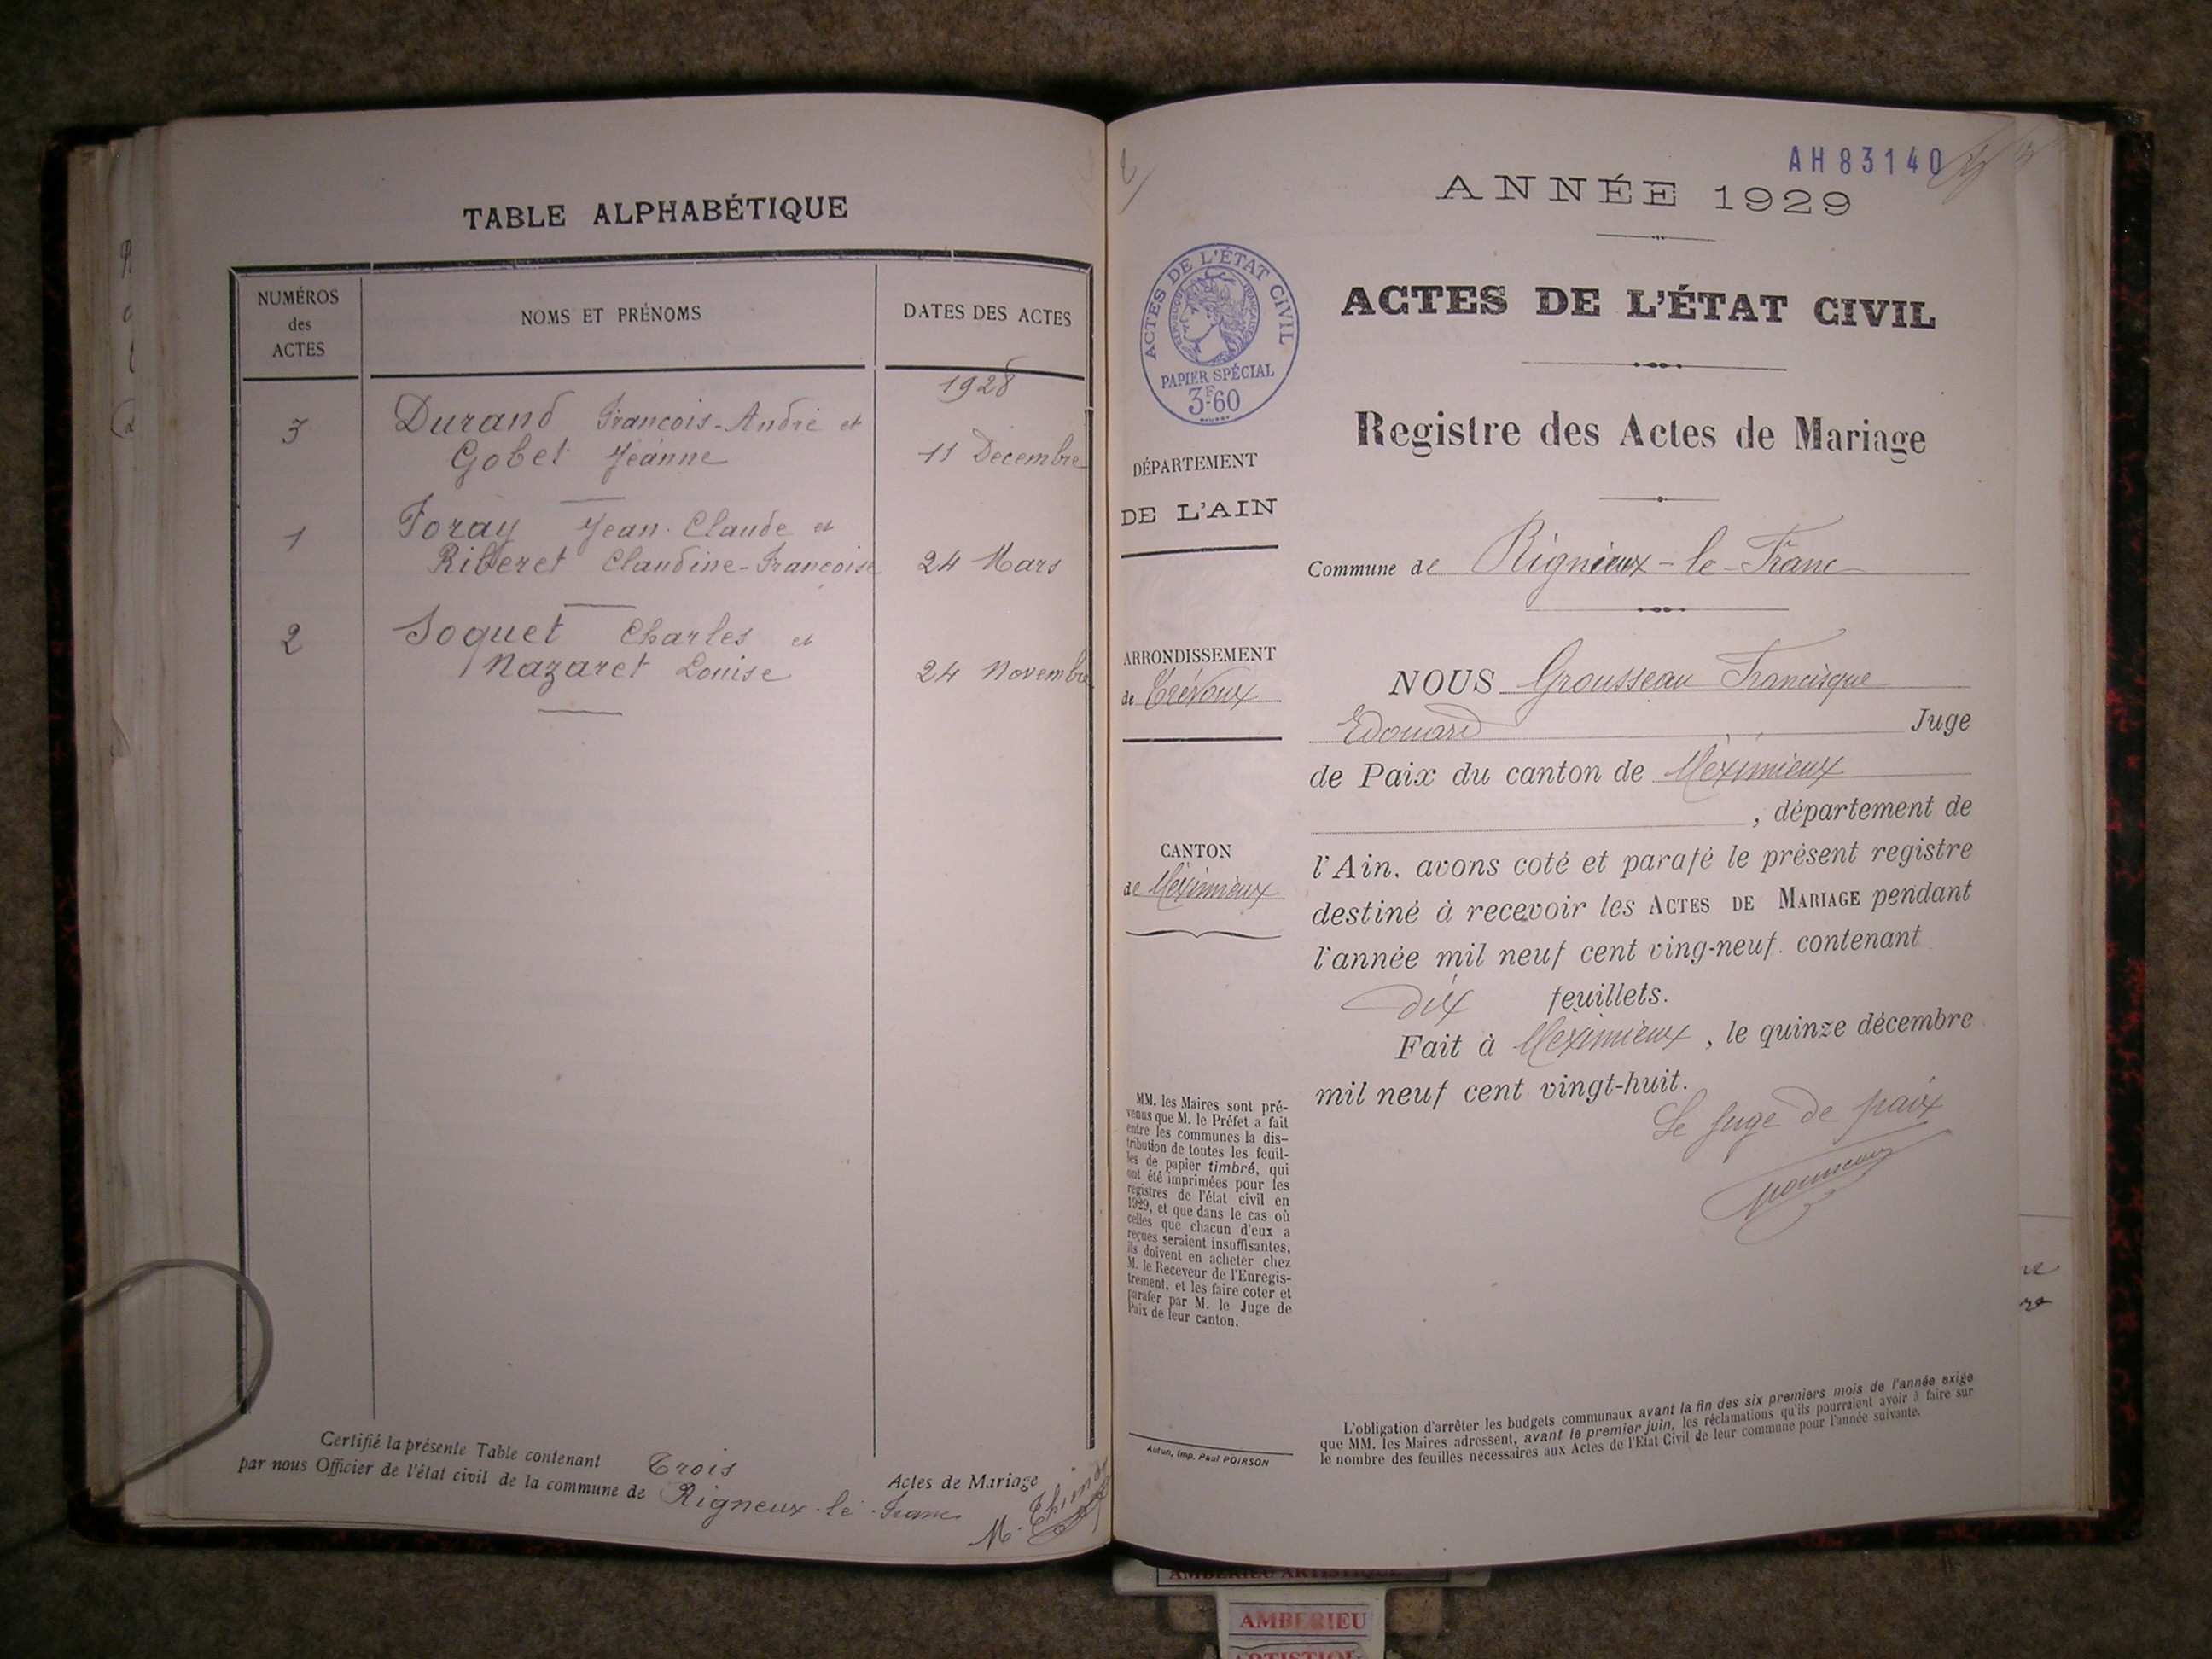 TABLE ALPHABÉTIQUE
NUMÉROS
des
ACTES
NOMS ET PRÉNOMS
DATES DES ACTES
1928
3
Durand François-André et
Gobet Jeanne
11 Décembre
1
Foray Jean-Claude et
Riberet Claudine-Françoise
24 Mars
2
Soquet Charles et
Nazaret Louise
24 Novembre
Certifié la présente Table contenant Trois Actes de Mariage
par nous Officier de l'état civil de la commune de Rigneux-le-Franc
AH83140
ANNÉE 1929
ACTES DE L'ÉTAT CIVIL
RÉPUBLIQUE FRANÇAISE
PAPIER SPÉCIAL
3F.60
ACTES DE L'ÉTAT CIVIL
Registre des Actes de Mariage
DÉPARTEMENT
DE L'AIN
Commune de Rignieux-le-Franc
ARRONDISSEMENT
de Trévoux
CANTON
de Méximieux
NOUS Grousseau Francisque
Edouard Juge
de Paix du canton de Méximieux
, département de
l'Ain, avons coté et parafé le présent registre
destiné à recevoir les ACTES DE MARIAGE pendant
l'année mil neuf cent ving-neuf. contenant
dix feuillets.
Fait à Méximieux, le quinze décembre
mil neuf cent vingt-huit.
Le Juge de paix
MM. les Maires sont pré-
venus que M. le Préfet a fait
entre les communes la dis-
tribution de toutes les feuil-
les de papier timbré, qui
ont été imprimées pour les
registres de l'état civil en
1929, et que dans le cas où
celles que chacun d'eux a
reçues seraient insuffisantes,
ils doivent en acheter chez
M. le Receveur de l'Enregis-
trement, et les faire coter et
parafer par M. le Juge de
Paix de leur canton.
Autun, Imp. Paul POIRSON
L'obligation d'arrêter les budgets communaux avant la fin des six premiers mois de l'année exige
que MM. les Maires adressent, avant le premier juin, les réclamations qu'ils pourraient avoir à faire sur
le nombre des feuilles nécessaires aux Actes de l'État Civil de leur commune pour l'année suivante.
AMBERIEU ARTISTIQUE
AMBERIEU